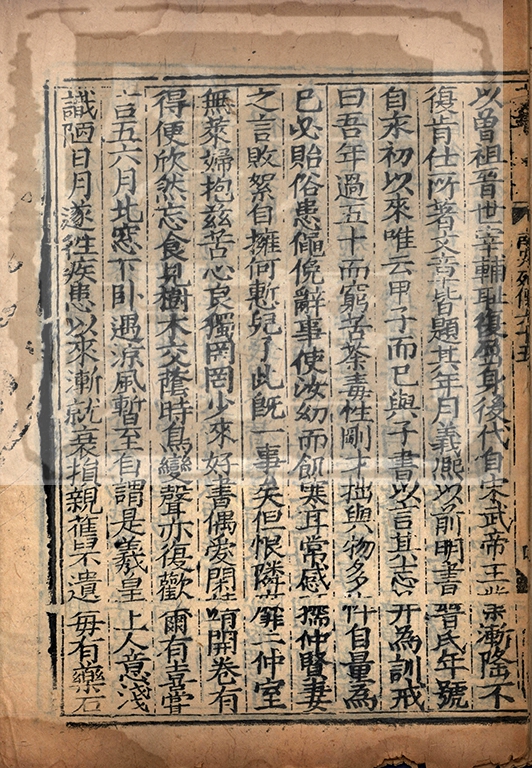 南史列傳六十五
以曾祖晉世宰輔恥復屈身後代自宋武帝王業漸隆不
復肯仕所著文章皆題其年月義熙以前明書晉氏年號
自永初以來唯云甲子而已與子書以言其志并為訓戒
曰吾年過五十而窮苦荼毒性剛才拙與物多忤自量為
已必貽俗患僶俛辭事使汝幼而飢寒耳常感孺仲賢妻
之言敗絮自擁何慙兒子此旣一事矣但恨隣靡二仲室
無萊婦抱茲苦心良獨罔罔少來好書偶愛閑靖開卷有
得便欣然忘食見樹木交蔭時鳥變聲亦復歡爾有喜嘗
言五六月北窓下卧遇涼風暫至自謂是羲皇上人意淺
識陋日月遂徃疾患以來漸就衰損親舊不遺每有藥石